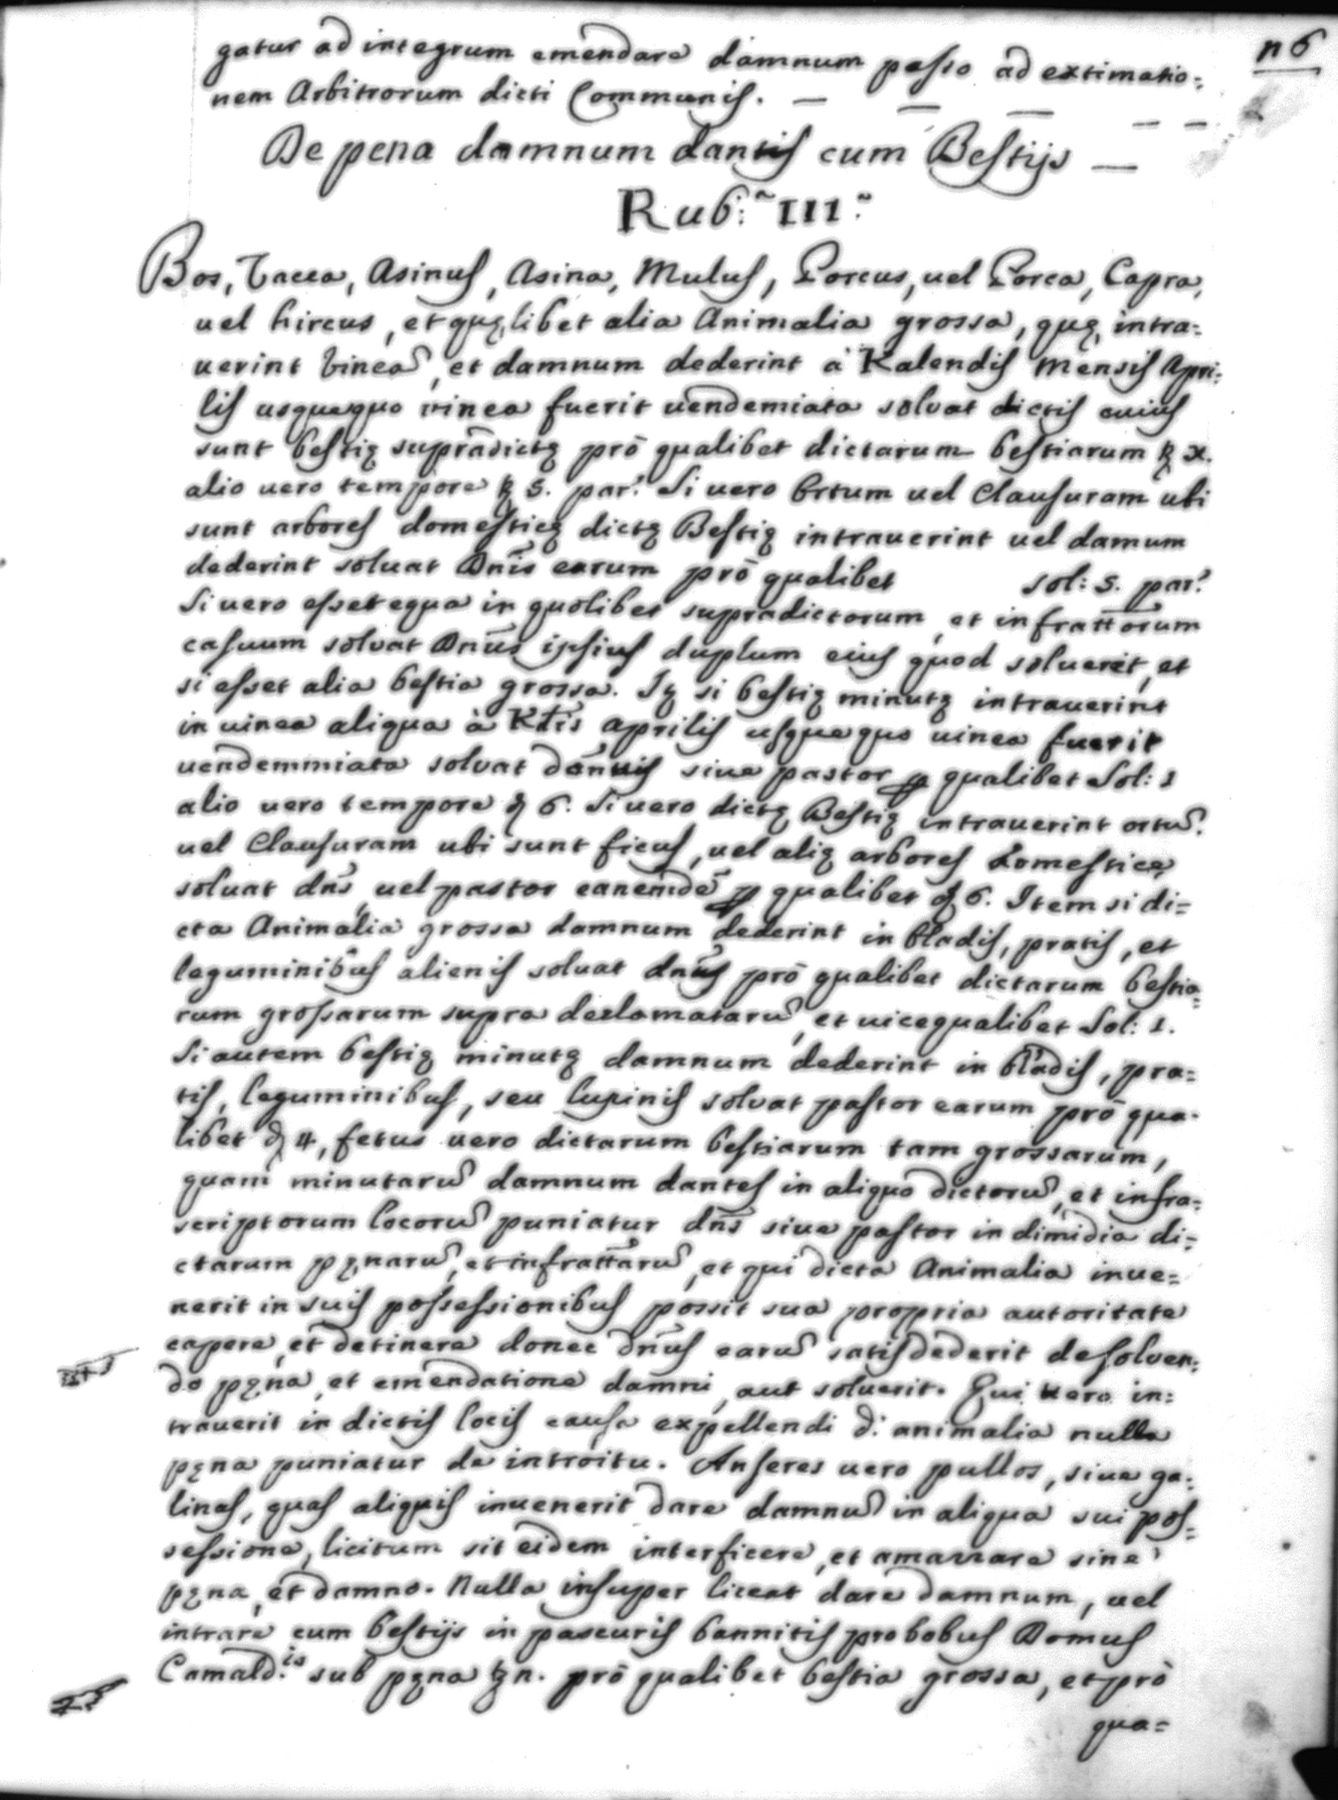 n6
gatur ad integrum emendare damnum passo ad extimatio=
nem Arbitrorum dicti Communis. —
De pena damnum dantis cum Bestijs —
Rub:~ III:~
Bos, Vacca, Asinus, Asina, Mulus, Porcus, uel Porca, Capra,
uel hircus, et quęlibet alia Animalia grossa, quę intra=
uerint vineã, et damnum dederint à Kalendis Mensis Apri=
lis usquequo vinea fuerit uendemiata soluat dictis cuius
sunt bestię supradictę prõ qualibet dictarum bestiarum ꝶ x.
alio uero tempore ꝶ 5. par: Si uero Ortum uel Clausuram ubi
sunt arbores domesticę dictę Bestię intrauerint uel damum
dederint soluat Dñis earum prõ qualibet sol: 5. par:
Si uero esset equa in quolibet supradictorum, et infrattorum
casuum soluat Dñus ipsius duplum eius quod solueret, et
si esset alia bestia grossa. Iꝫ si bestię minutę intrauerint
in uinea aliqua à Klis Aprilis usquequo uinea fuerit
uendemmiata soluat dõnuis siue pastor ꝓ qualibet Sol: 1
alio uero tempore ꝺ 6. Si uero dictę Bestię intrauerint ortũ.
uel Clausuram ubi sunt ficus, uel alię arbores domesticę
soluat dñs uel pastor eanemdẽ ꝓ qualibet ꝺ 6. Item si di=
cta Animalia grossa damnum dederint in bladis, pratis, et
leguminibus alienis soluat dñus prõ qualibet dictarum bestia=
rum grossarum supra declamatarũ, et uicequalibet Sol: 1.
Si autem bestię minutę damnum dederint in bladis, pra=
tis, leguminibus, seu lupinis soluat pastor earum prõ qua=
libet ꝺ 4, fetus uero dictarum bestiarum tam grossarum,
quam minutarũ damnum dantes in aliquo dictorũ, et infra=
scriptorum locorũ puniatur dñs siue pastor in dimidia di=
ctarum pęnarũ, et infrattarũ, et qui dicta Animalia inue=
nerit in suis possessionibus possit sua propria autoritate
capere, et detinere donec dñus earũ satisdederit de soluen=
do pęna, et emendatione damni, aut soluerit. Qui uero in=
trauerit in dictis locis causa expellendi d: animalia nulla
pęna puniatur de introitu. Anseres uero pullos, siue ga=
linas, quas aliquis inuenerit dare damnũ in aliqua sui pos=
sessione, licitum sit eidem interficere, et amazzare sine
pęna, et damno. Nulla insuper liceat dare damnum, uel
intrare cum bestijs in pascuris bannitis probobus Domus
Camald:is sub pęna ꝶ n. prõ qualibet bestia grossa, et prò
qua=